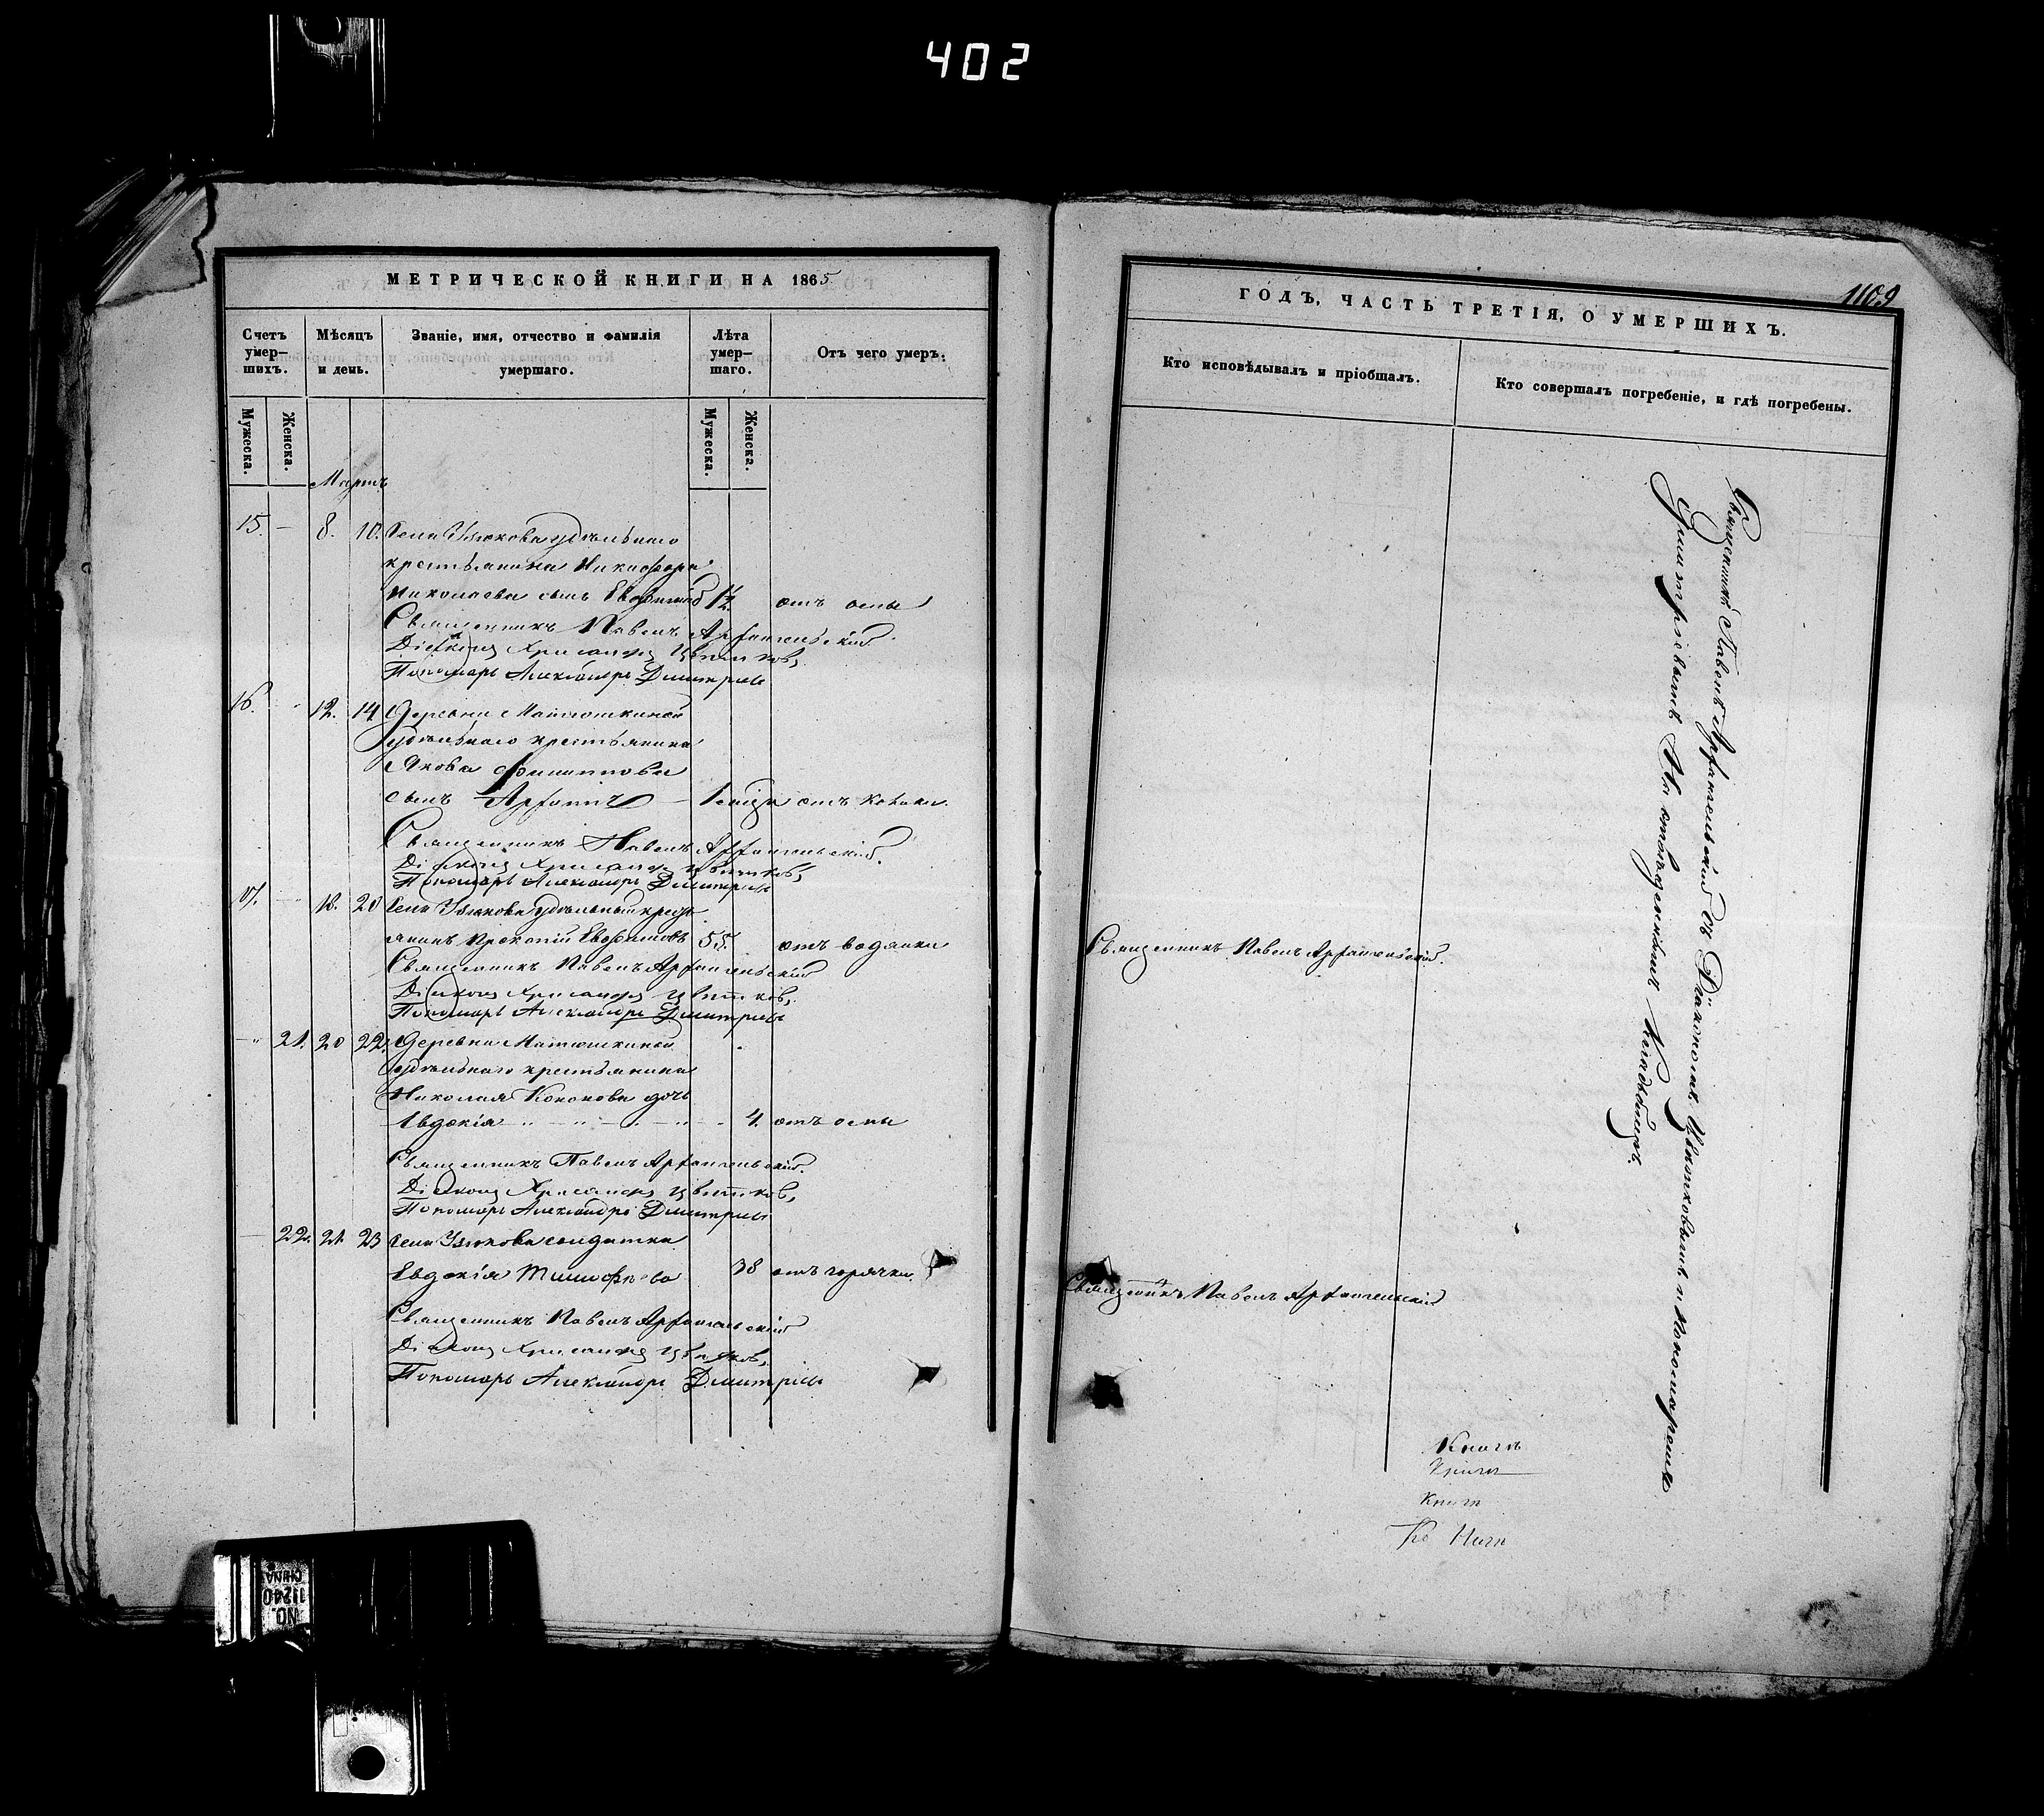 402
МЕТРИЧЕСКОЙ КНИГИ НА 1865
Счетъ умер-шихъ.
Мѣсяцъ и день.
Званіе, имя, отчество и фамилія умершаго.
Лѣта умер-шаго.
Отъ чего умеръ.
Мужеска.
Женска.
Мужеска.
Женска.
Мартъ
15. - 8. 10. Села Узюкова удѣльнаго
крестьянина Никифора
Николаева сынъ Евфимій 1½. отъ оспы
Священникъ Павелъ Архангельскій.
Діаконъ Хрисанфъ Цвѣтковъ,
Пономарь Александръ Дмитріевъ
16. 12. 14 Деревни Матюшкиной
удѣльнаго крестьянина
Якова Филиппова
сынъ
Священникъ Павелъ Архангельскій.
Діаконъ Хрисанфъ Цвѣтковъ,
Пономарь Александръ Дмитріевъ
17. 18. 20 Села Узюкова удѣльный крест
янинъ Прокопій Евфимовъ 55. отъ водянки
Священникъ Павелъ Архангельскій
Діаконъ Хрисанфъ Цвѣтковъ,
Пономарь Александръ Дмитріевъ
21. 20 22. Деревни Матюшкиной
удѣльнаго крестьянина
Николая Кононова дочь
Авдокія 4. отъ оспы
Священникъ Павелъ Архангельскій.
Діаконъ Хрисанфъ Цвѣтковъ,
Пономарь Александръ Дмитріевъ
22. 21. 23 Села Узюкова солдатка
Евдокія Тимофѣева 38 отъ горячки.
Священникъ Павелъ Архангельскій
Діаконъ Хрисанфъ Цвѣтковъ,
Пономарь Александръ Дмитріевъ
1109
ГОДЪ, ЧАСТЬ ТРЕТІЯ, О УМЕРШИХЪ.
Кто исповѣдывалъ и пріобщалъ.
Кто совершалъ погребеніе, и гдѣ погребены.
Священникъ Павелъ Архангельскій.
Священникъ Павелъ Архангельскій
Священникъ Павелъ Архангельскій съ Діакономъ Цвѣтковымъ и Пономаремъ
Димитріевымъ На отведенномъ Кладбищѣ.
Книгъ
Книги
Книги
NO. 11240
CHINA